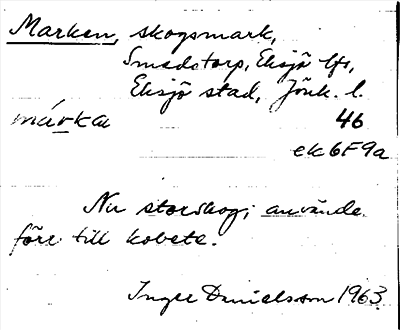 Marken, skogsmark,
Smedstorp, Eksjö lfs,
Eksjö stad, Jönk. l.
márka 46
ek 6F9a
Nu storskog; använde
förr till kobete.
Inger Danielsson 1963